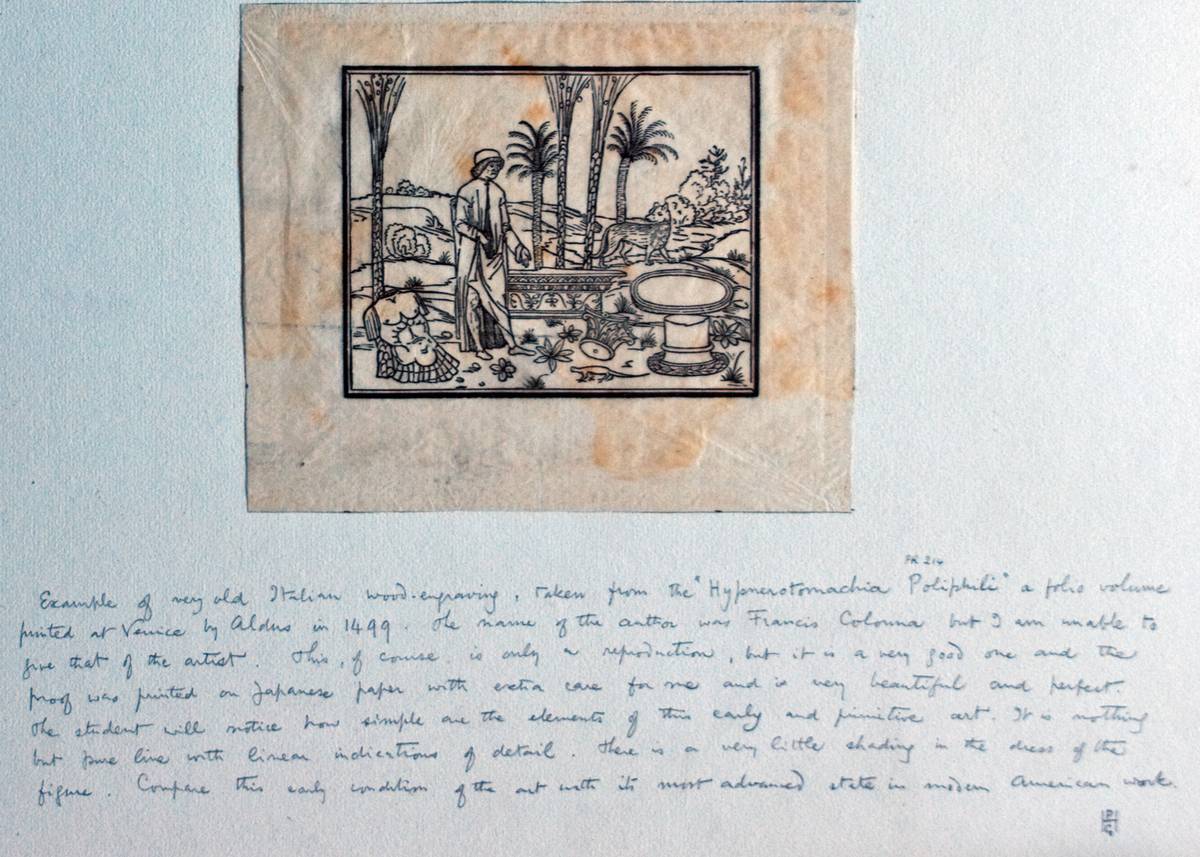 PR 214
Example of very old Italian wood-engraving, taken from the "Hypnerotomachia Poliphili" a folio volume
printed at Venice by Aldus in 1499. The name of the author was Francis Colonna but I am unable to
give that of the artist. This, of course, is only a reproduction, but it is a very good one and the
proof was printed on Japanese paper with extra care for me and is very beautiful and perfect.
The student will notice how simple are the elements of this early and primitive art. It is nothing
but pure line with linear indications of detail. There is a very little shading in the dress of the
figure. Compare this early condition of the art with its most advanced state in modern American work.